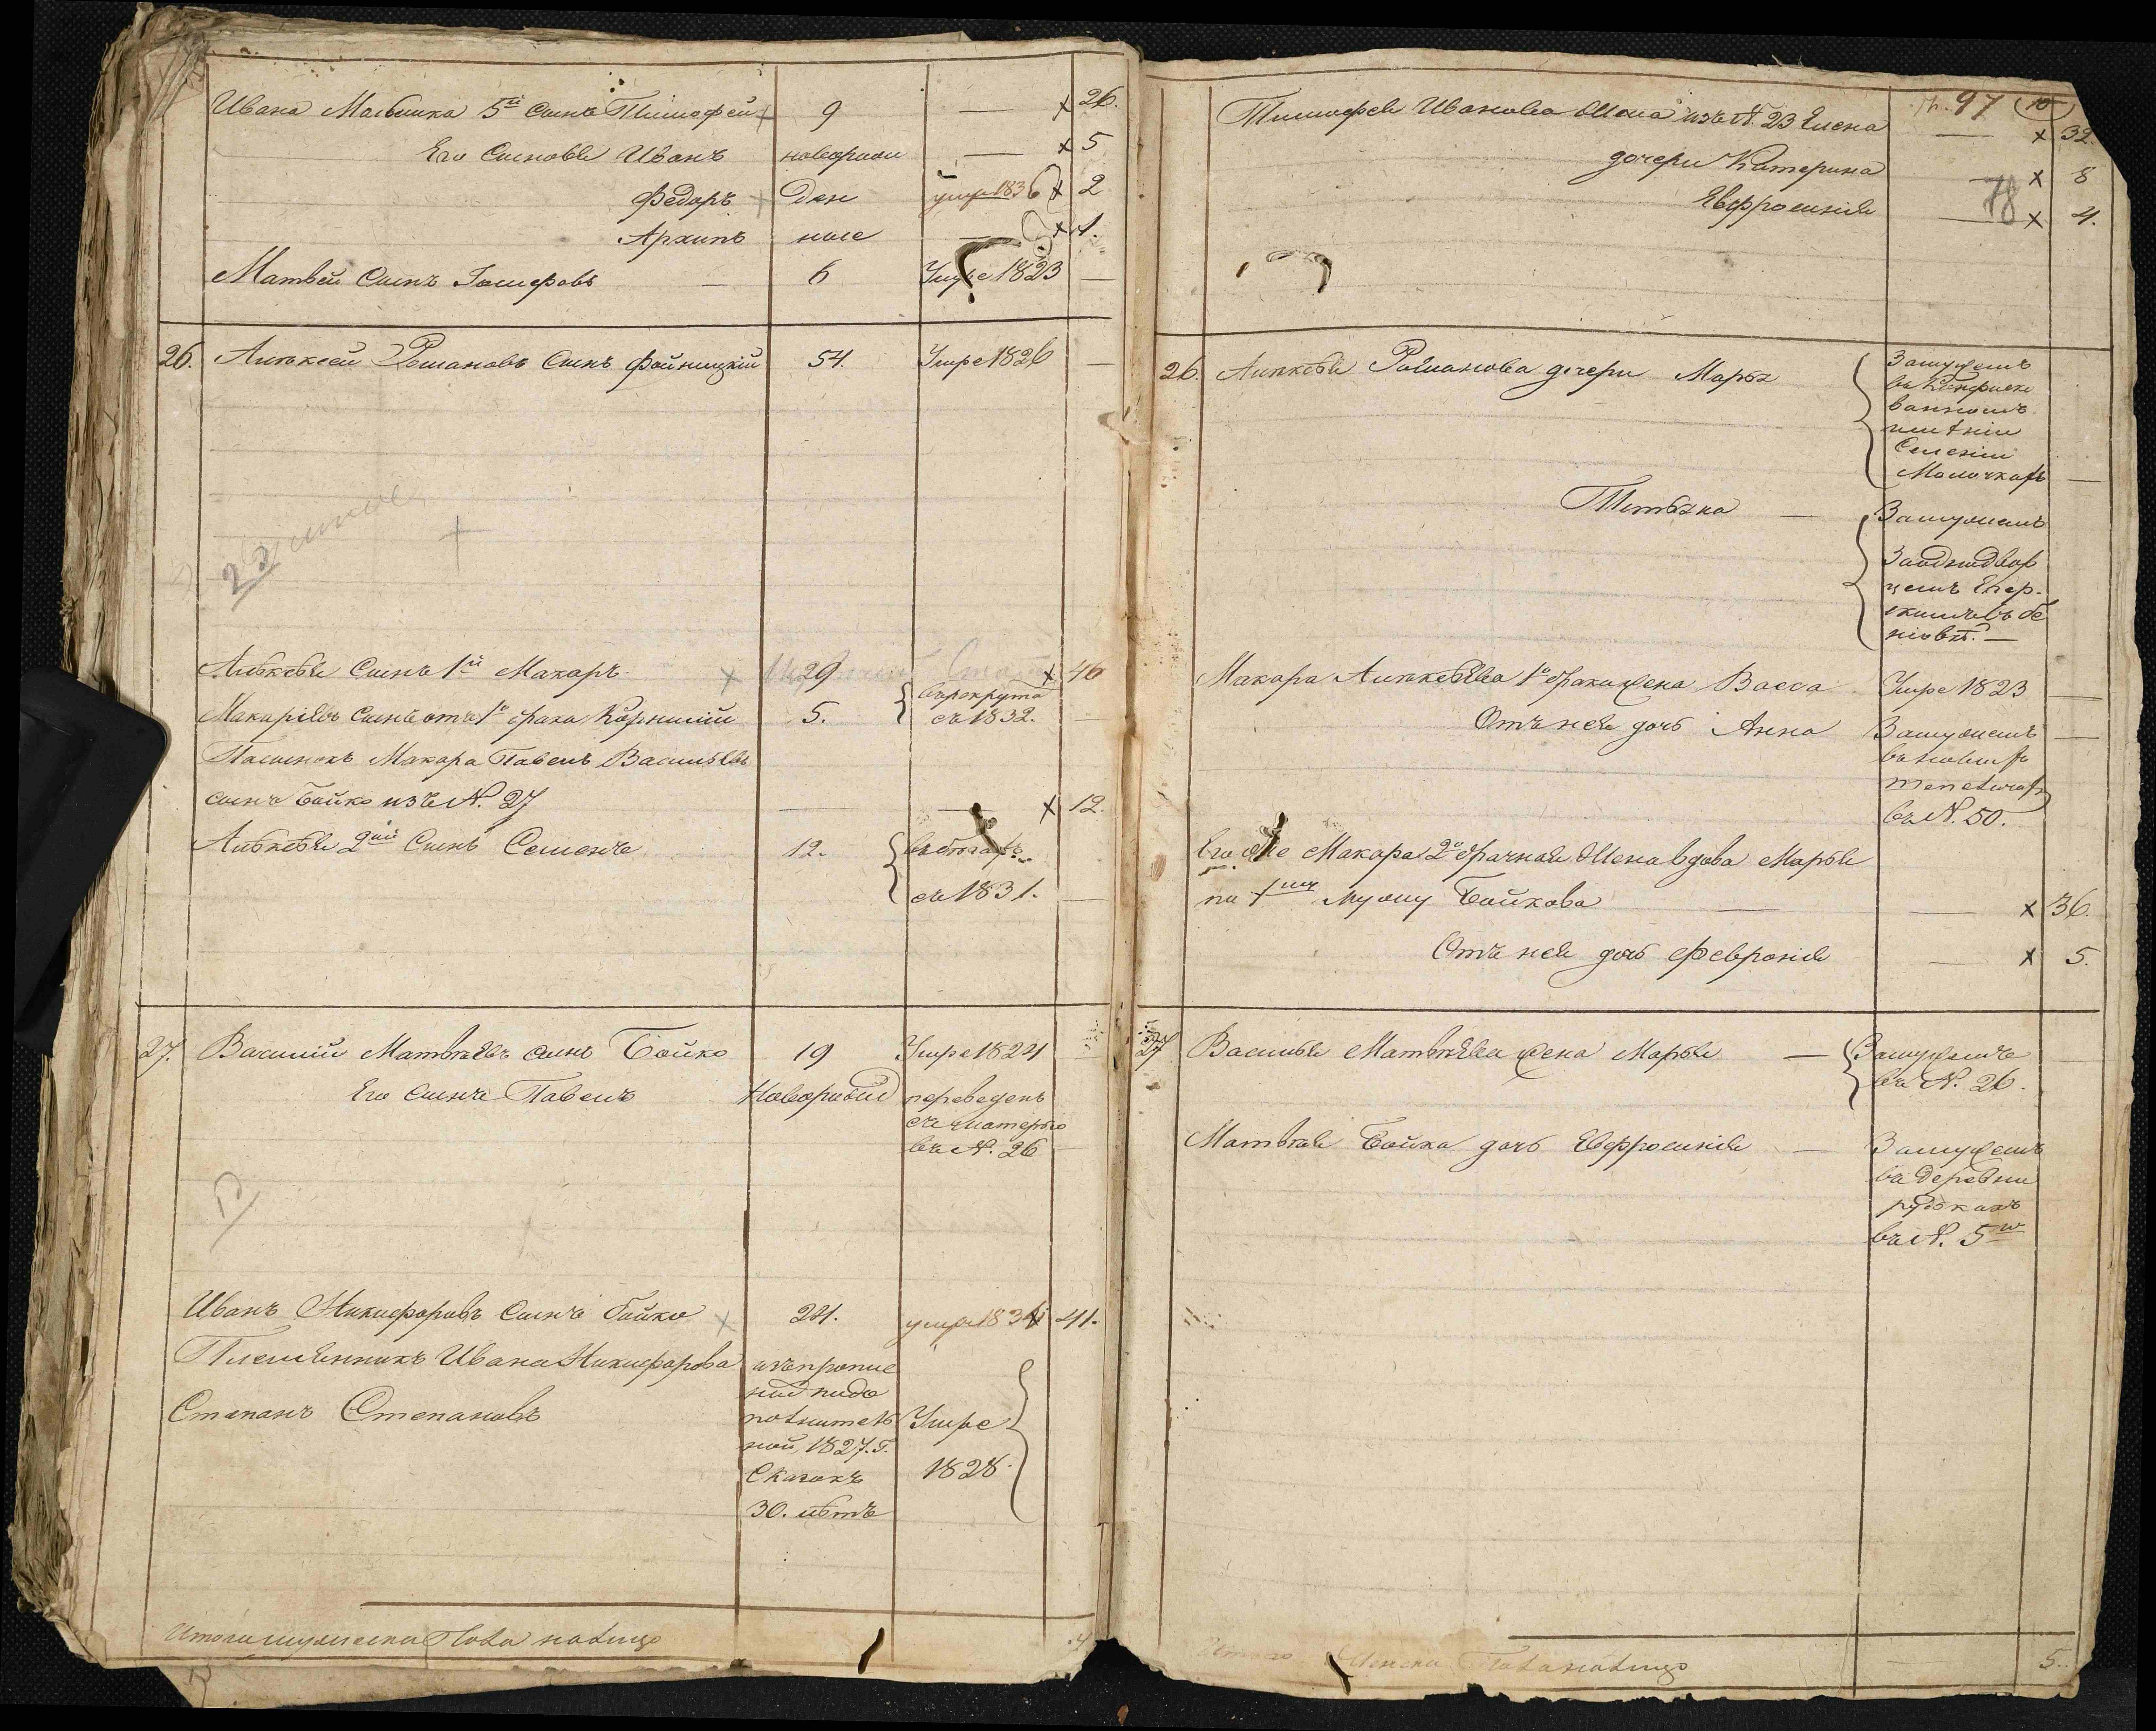 Ивана Малышка 5й сынъ Тимофей 9 — × 26.
Его сыновья Иванъ новорож — × 5
Федоръ ден умре 1836 × 2
Архипъ ные — × 1.
Матвей сынъ — 6 Умре 1823 —
26. Алексей Романовъ сынъ Фойницкій 54. Умре 1826 —
Алексея сынъ 1й Макаръ 29 × 46
Макаріевъ сынъ отъ 1о брака Корнилій 5. въ рекрута
съ 1832. —
Пасынокъ Макара Павелъ Васильевъ
сынъ Бойко изъ N. 27 — — × 12.
Алексея 2ой сынъ Семенъ 12. въ бегахъ
съ 1831. —
27. Василій Матвеевъ сынъ Бойко 19 Умре 1824 —
Его сынъ Павелъ новорож переведенъ
съ матерью
въ N. 26 —
Иванъ Никифоровъ сынъ Бойко 24. умре 41.
Племянникъ Ивана Никифорова изъ пропис
Степанъ Степановъ Умре
ной 1827. г.
сказокъ 1828.
30. летъ
Итого мужеска пола налицо 4
97 10
Тимофея Иванова жена изъ N. 23 Елена — × 32.
дочери Катерина — × 8
78
Евфросинія — × 4.
26. Алексея Романова дочери Марья Замужемъ
въ конфиско
ванномъ
именіи
Селеніи
—
Татьяна — Замужемъ
За однодвор
цемъ
Макара Алексеева 1о брака жена Васса Умре 1823 —
Отъ нея дочь Анна Замужемъ —
въ N. 50.
Его же Макара 2о брачная жена вдова Марья
по 1му мужу Бойкова — — × 36.
Отъ нея дочь Февронія — × 5.
27 Василья Матвеева жена Марья — Замужемъ —
въ N. 26.
Матвея Бойка дочь Евфросинія — Замужемъ
въ деревни
Рудкахъ
въ N. 5м
Итого женска пола налицо — 5.